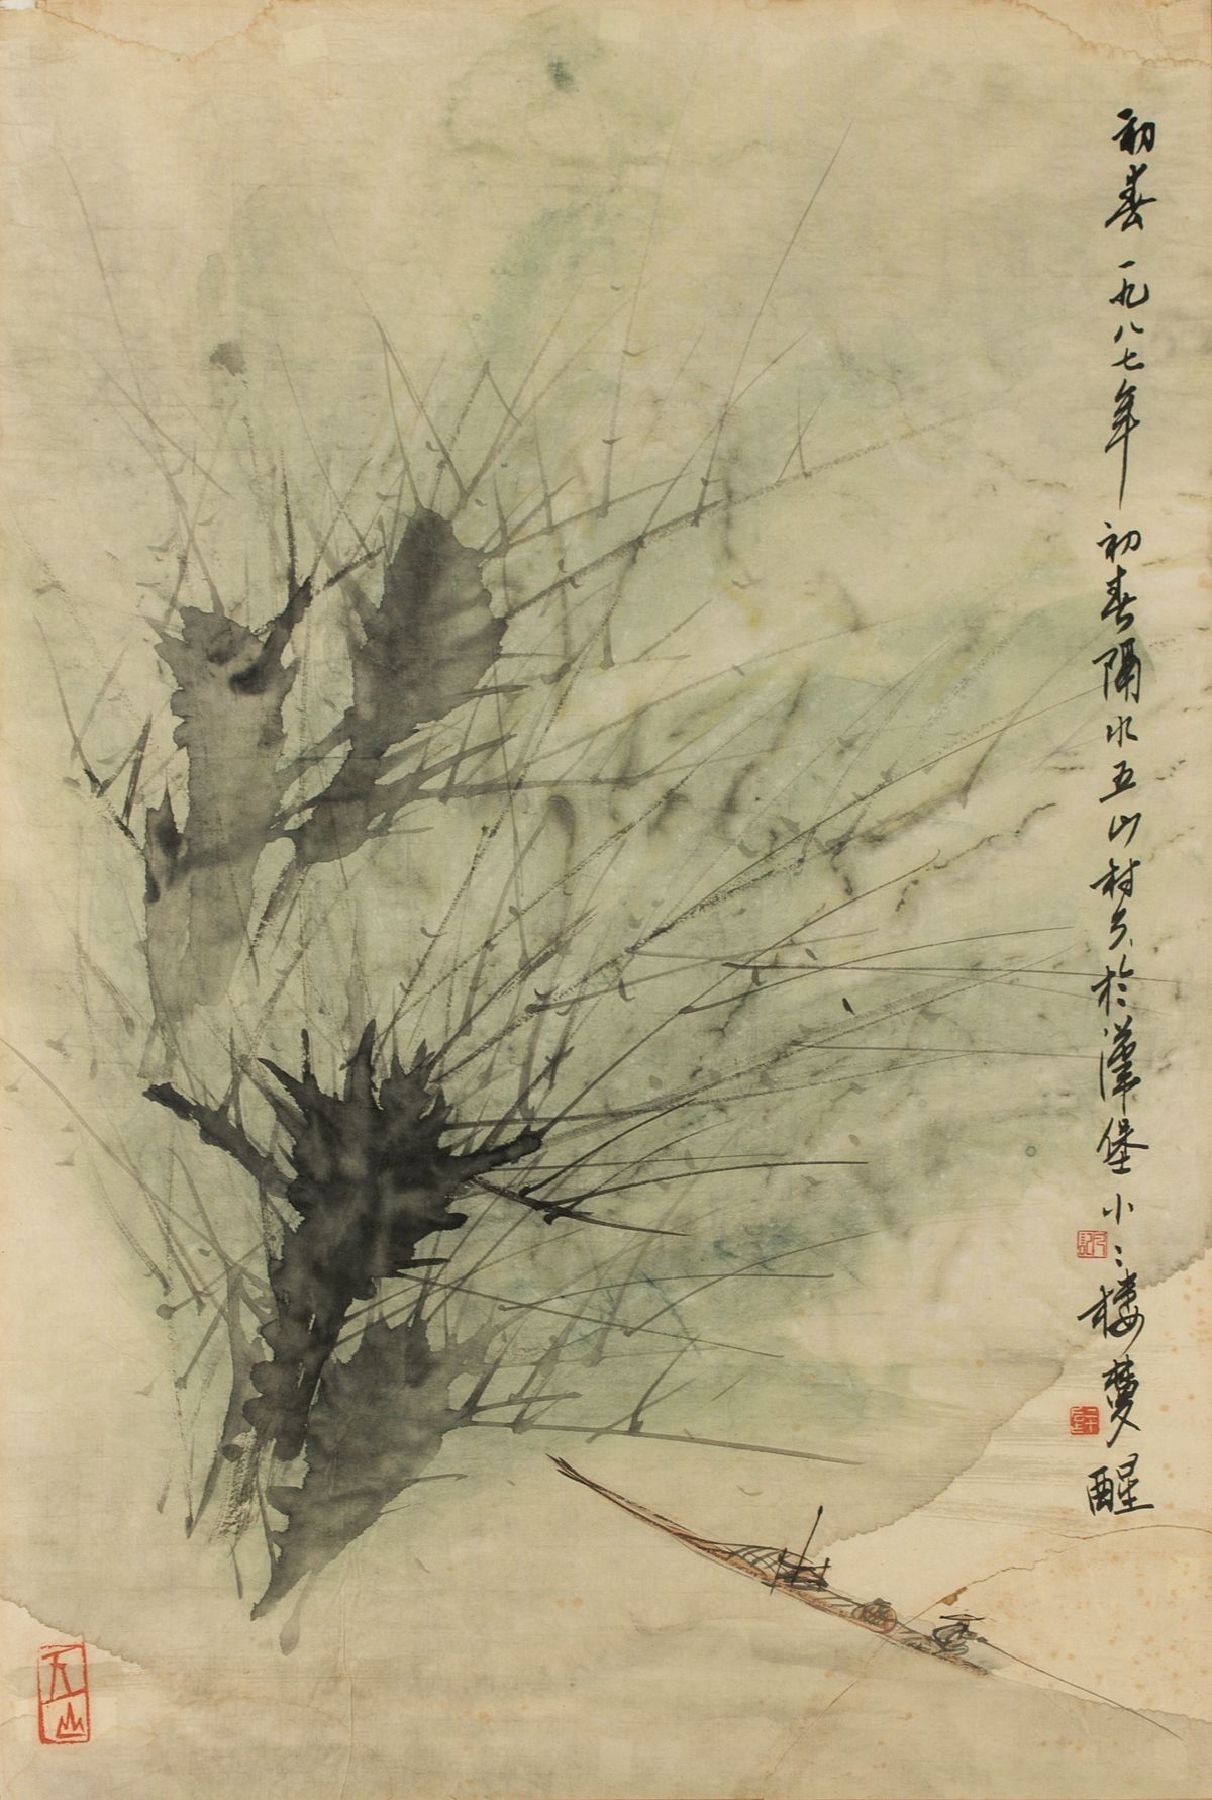 初春 一九八七年 初春隔水五山村 於漢堡小小樓夢醒
天山